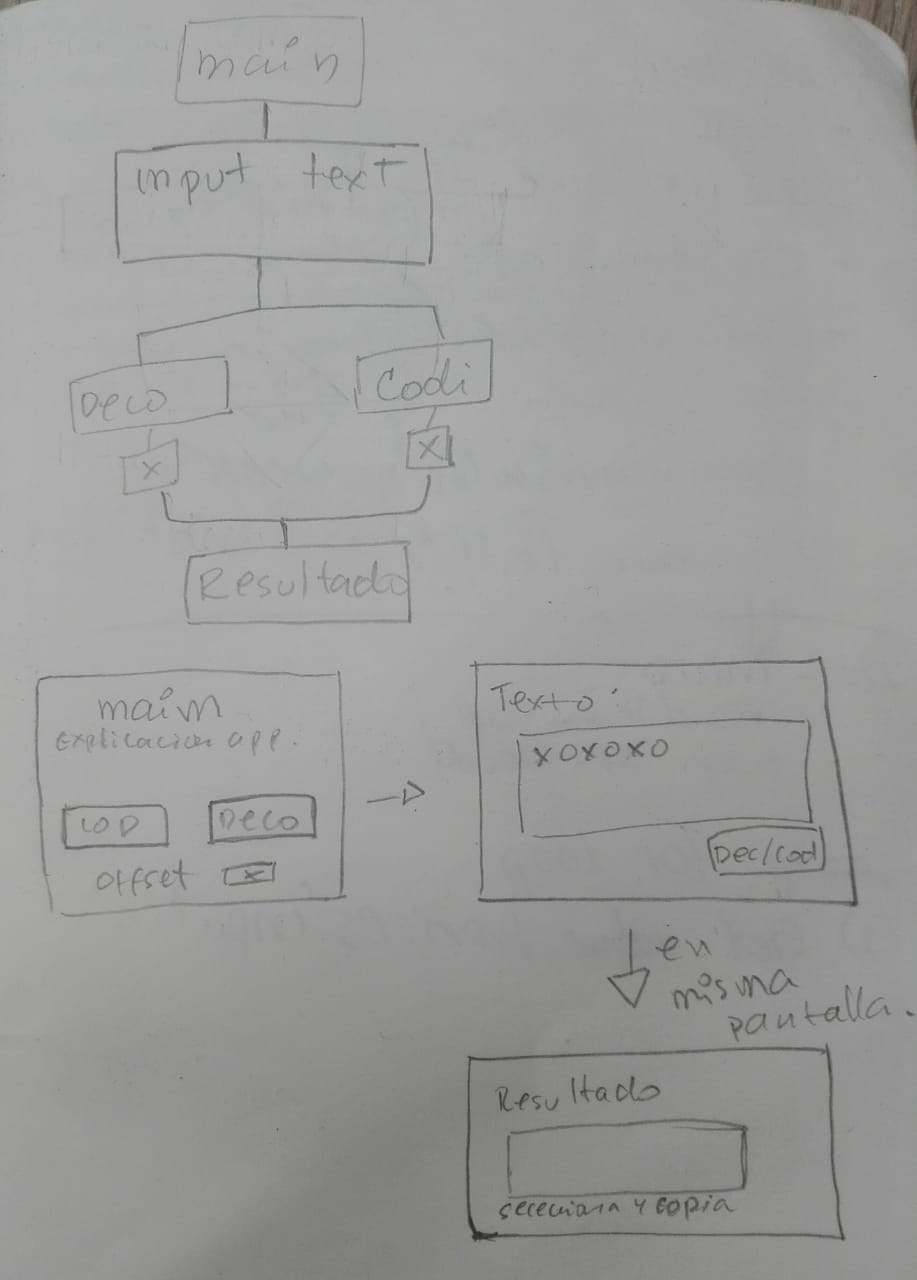 main
input text
Deco
Codi
x
x
Resultado
main
Explicacion app.
COD
Deco
offset x
Texto:
xoxoxo
Dec/cod
en
misma
pantalla.
Resultado
sececiona y copia